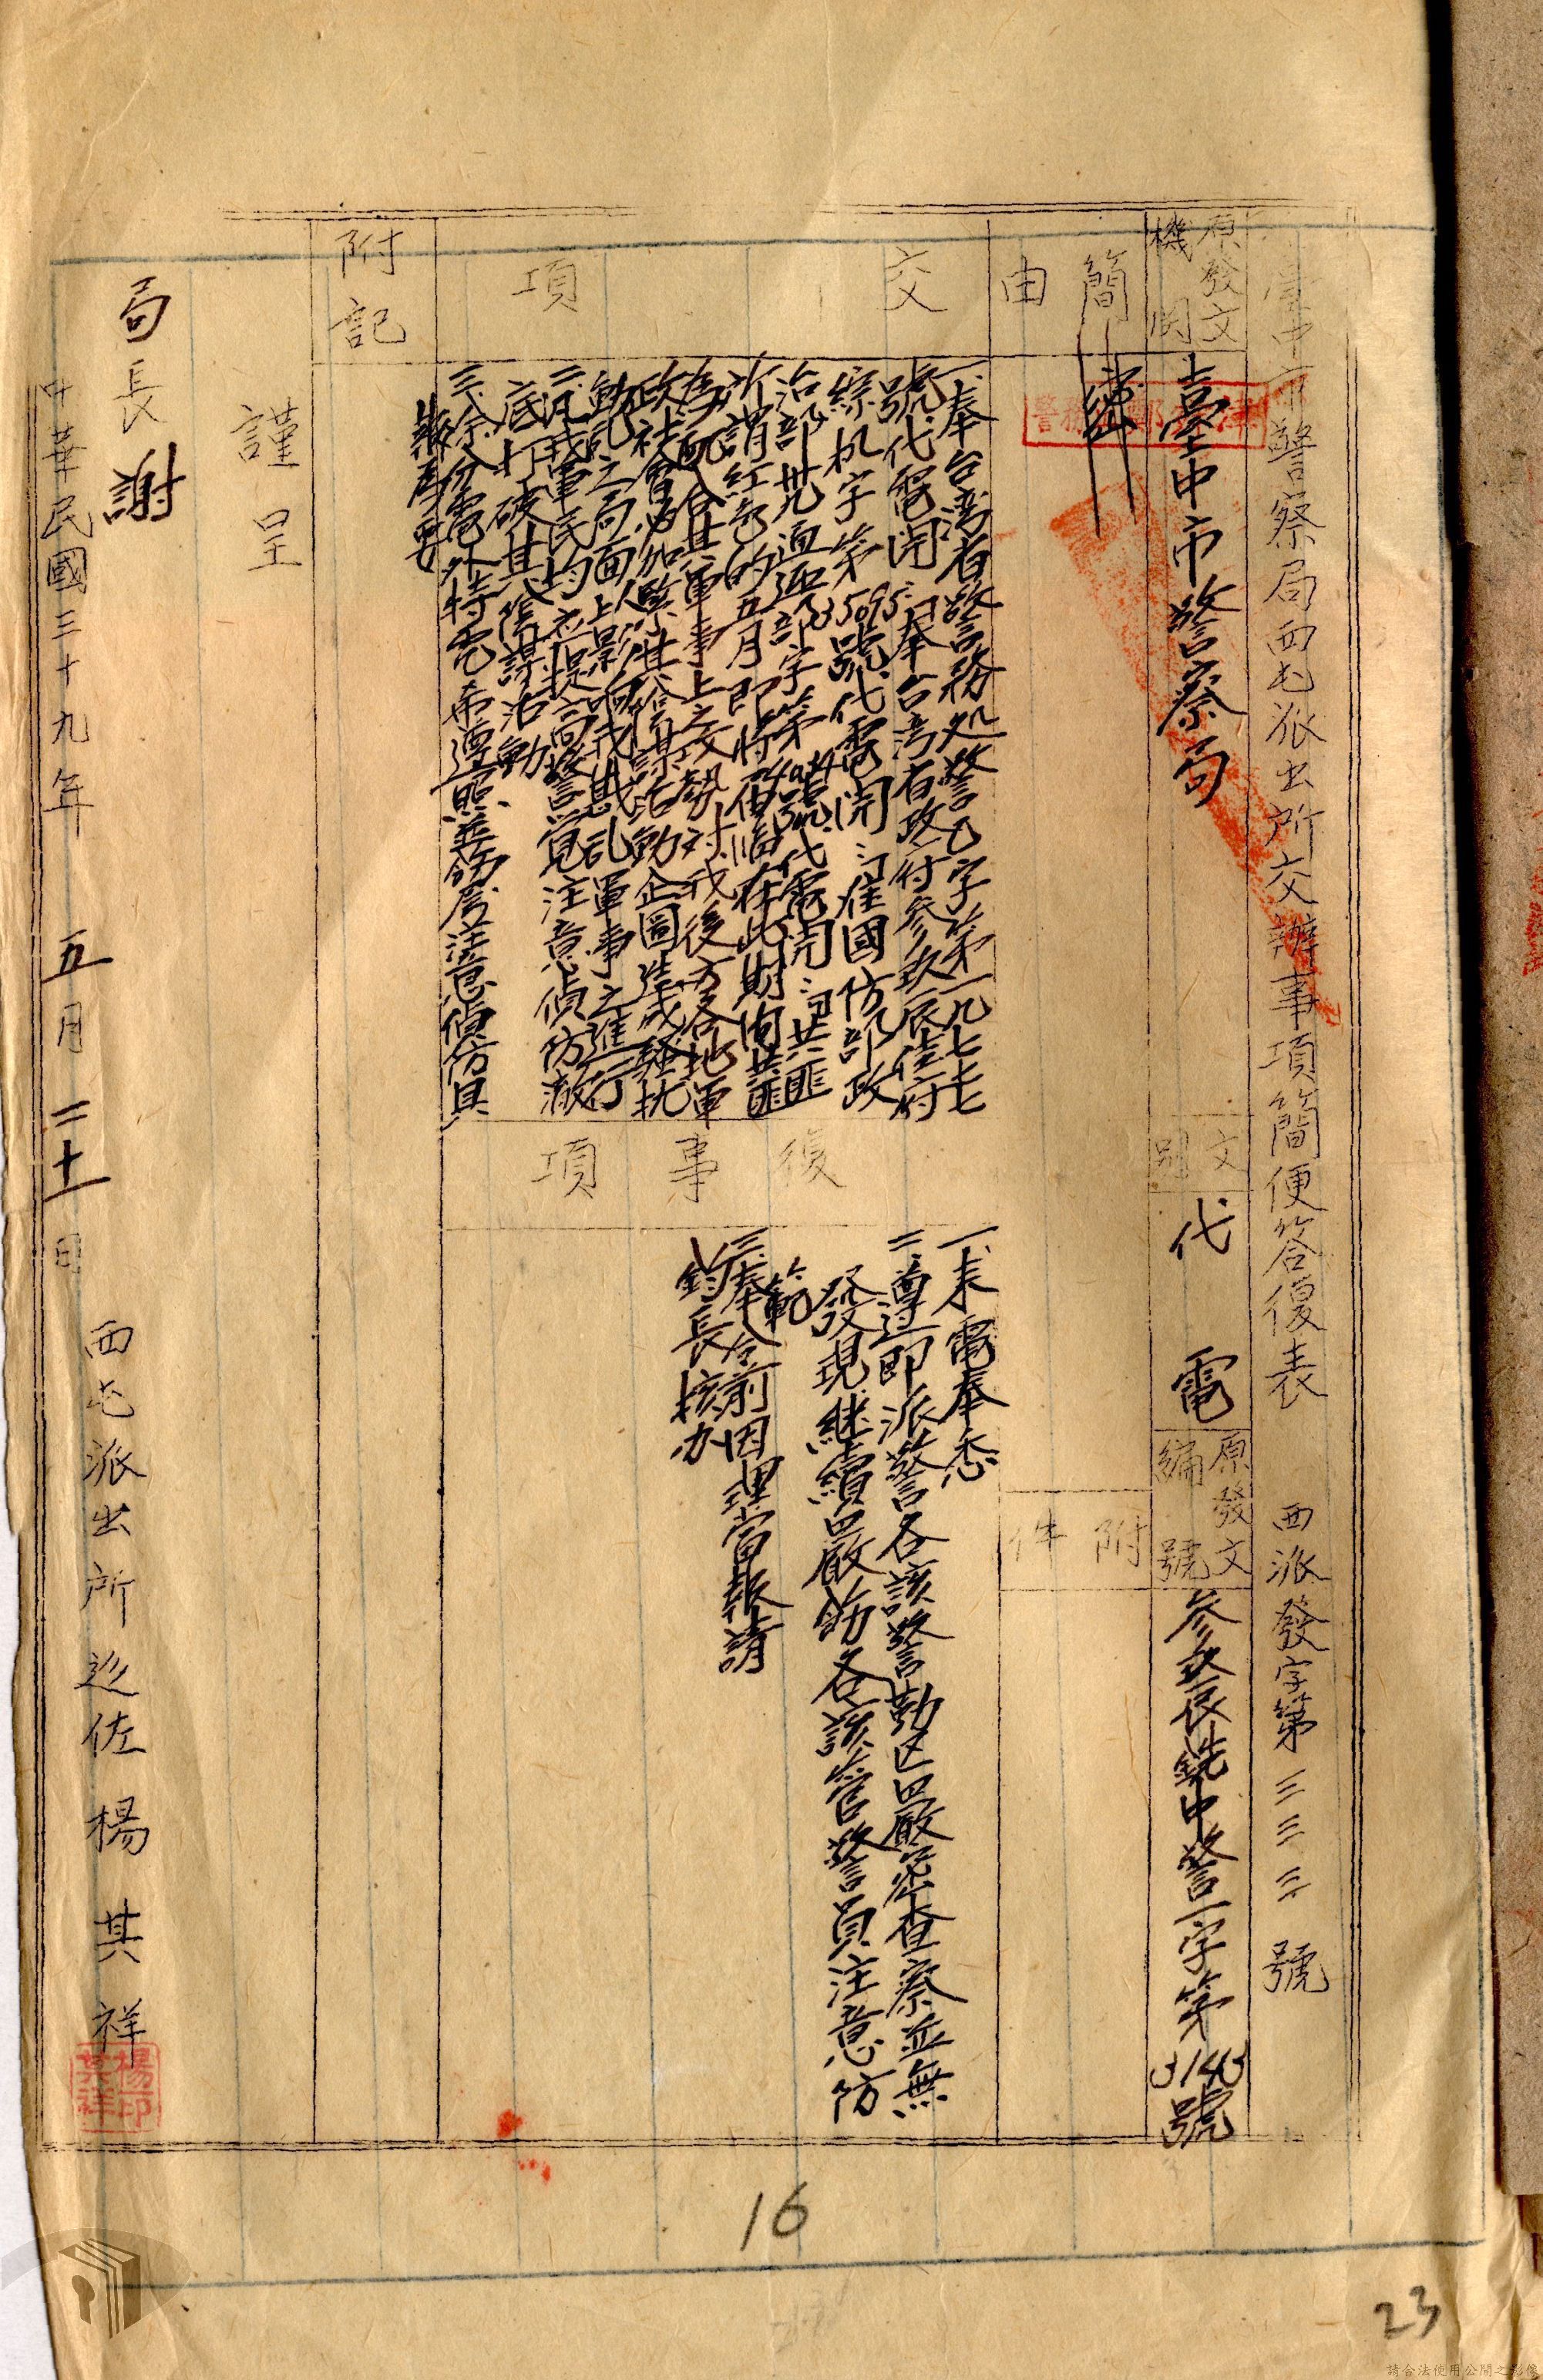 臺中市警察局西屯派出所交辦事項簡便答復表 西派發字第三三三號
原發文機関
臺中市警察局
文別
代電
原發文編號
參玖辰銑中警一字第3143號
簡由
附件
交項
一、奉台湾省警務処警乙字第一九七七七
號代電開「奉台湾省政府參玖辰佳府
綜机字第35095號代電開「准國防部政
治部卅九迴迎部字第號代電開「共匪
所謂紅色的五月即將來臨在此期间共匪
為配合其軍事上之攻勢对我後方各地軍
政社會必加緊其陰謀活動企圖造成騷扰
動乱之局面影响我戡乱軍事之進行
二、我軍民均应提高警覚注意偵防澈
底打破其陰謀活動
三、除分電外特電希遵照並飭屬注意偵防具
報為要
復事項
一、表電奉悉
二、遵即派警各該警勤区嚴密查察並無
發現継續嚴飭各該管警員注意防
範
三、奉令前因理當報請
鈞長核办
附記
謹呈
局長謝
中華民國三十九年五月二十一日
西屯派出所巡佐楊其祥
楊其祥印
16
23
請合法使用公開之影像